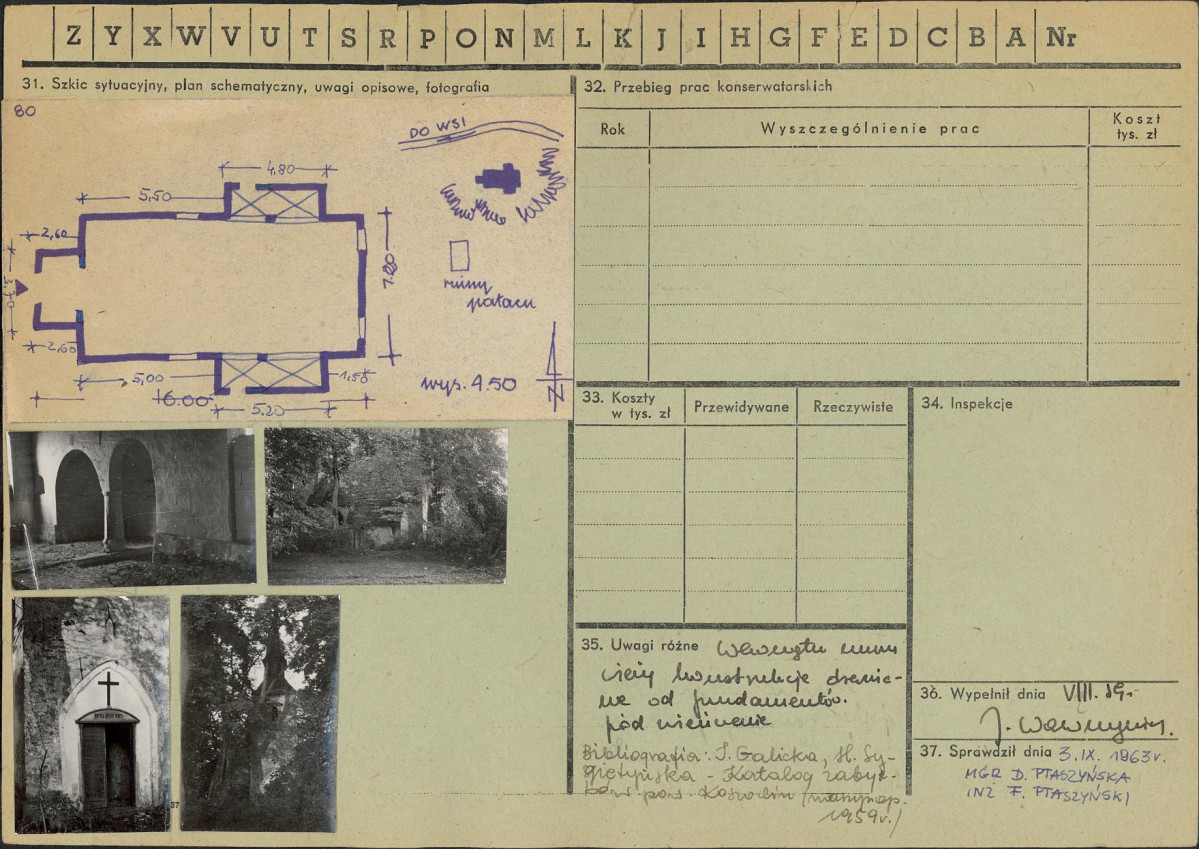 Z Y X W V U T S R P O N M L K J I H G F E D C B A Nr
31. Szkic sytuacyjny, plan schematyczny, uwagi opisowe, fotografia
80
DO WSI
4.80
5,50
2,60
7.80
3,70
ruiny
pałacu
2,60
5,00
1,50
wys. 4.50
16.00
5.20
N
57
32. Przebieg prac konserwatorskich
Rok
Wyszczególnienie prac
Koszt
tys. zł
33. Koszty
w tys. zł
Przewidywane
Rzeczywiste
34. Inspekcje
35. Uwagi różne Wewnątrz
konstrukcje drewnia-
ne od fundamentów.
pod
Bibliografia: I. Galicka, H. Sy-
gietyńska – Katalog zabyt-
ków pow. /maszynop.
1959r./
36. Wypełnił dnia VIII. 59.
J.
37. Sprawdził dnia 3.IX.1963r.
MGR D. PTASZYŃSKA
INŻ F. PTASZYŃSKI